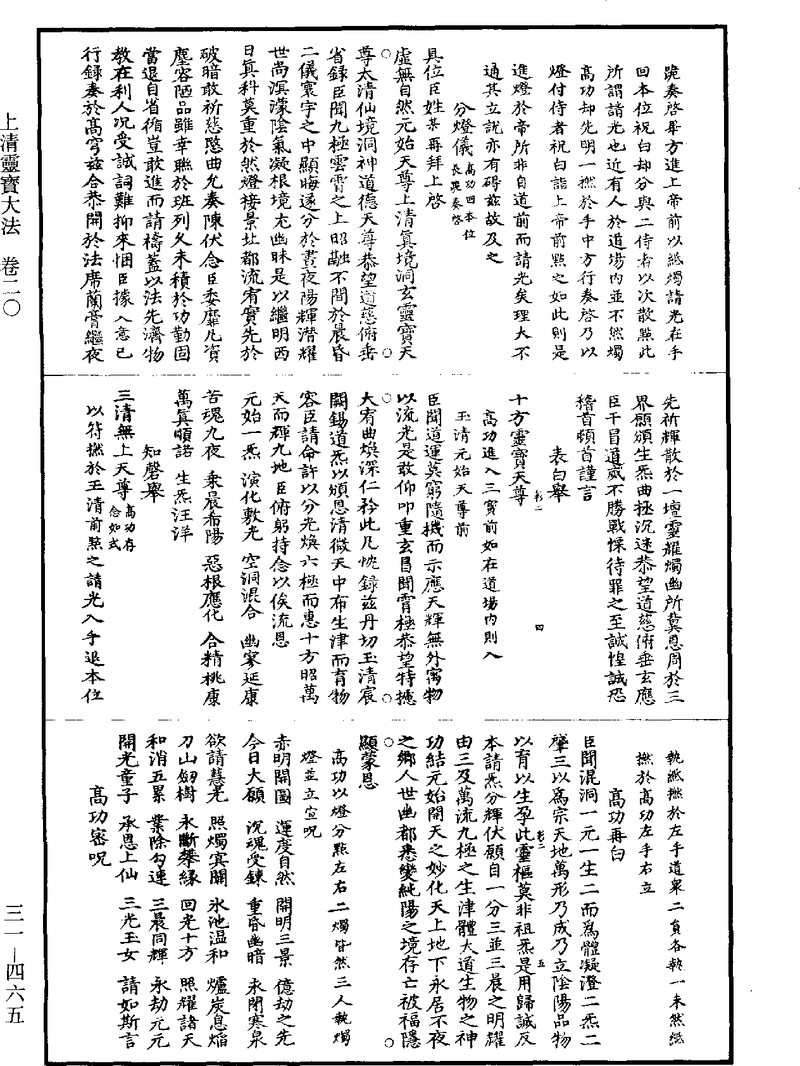 上清靈寶大法　卷二〇
三一—四六五
跪奏啓畢方進上帝前以紙燭請光在手
回本位祝白却分與二侍者以次散點此
所謂請光也近有人於道場內並不然燭
高功却先明一撚於手中方行奏啓乃以
燈付侍者祝白詣上帝前點之如此則是
進燈於帝所非自道前而請光矣理大不
通其立說亦有碍茲故及之
分燈儀　高功回本位長跪奏啓
具位臣姓某再拜上啓
虛無自然元始天尊上清眞境洞玄靈寶天
尊太清仙境洞神道德天尊恭望道慈俯垂
省錄臣聞九極雲霄之上昭融不間於晨昏
二儀寰宇之中顯晦遂分於晝夜陽輝潛耀
世尚溟濛陰氣凝根境尢幽昧是以繼明西
日眞科莫重於然燈接景址都流宥實先於
破暗敢祈慈愍曲允奏陳伏念臣委靡凡資
塵容陋品雖幸聯於班列久未積於功勤固
當退自省循豈敢進而請禱蓋以法先濟物
教在利人況受誠詞難抑來悃臣據入意已
行錄奏於高穹茲合恭開於法席蘭膏繼夜
先祈輝散於一壇靈耀燭幽所冀恩周於三
界願頒生炁曲極沉迷恭望道慈俯垂玄應
臣干冒道威不勝戰慄待罪之至誠惶誠恐
稽首頓首謹言
表白舉
十方靈寶天尊
高功進入三寶前如在道場內則入
玉清元始天尊前
臣聞道運莫窮隨機而示應天輝無外寓物
以流光是敢仰叩重玄冒聞霄極恭望特撼
大宥曲煥深仁矜此凡忱錄茲丹切玉清宸
闕錫道炁以頒恩清微天中布生津而育物
容臣請命許以分光煥六極而惠十方昭萬
天而輝九地臣俯躬持念以俟流恩
元始一炁　演化敷光　空洞混合　幽冥延康
苦魂九夜　乘晨希陽　惡根應化　合精桃康
萬眞頓諾　生炁汪洋
知磬舉
三清無上天尊　高功存念如式
以符撚於玉清前點之請光入手退本位
執紙撚於左手道衆二員各執一未然紙
撚於高功左手右立
高功再白
臣聞混洞一元一生二而爲體凝澄二炁二
肇三以爲宗天地萬形乃成乃立陰陽品物
以育以生孕此靈樞莫非祖炁是用歸誠反
本請炁分輝伏願自一分三並三晨之明耀
由三及萬流九極之生津體大道生物之神
功結元始開天之妙化天上地下永居不夜
之鄉人世幽都悉變純陽之境存亡被福隱
顯蒙恩
高功以燈分點左右二燭皆然三人執燭
燈並立宣呪
赤明開圖　運度自然　開明三景　億劫之先
今日大願　沉魂受鍊　重昏幽暗　永閉寒泉
欲請慧光　照燭冥關　氷池温和　爐炭息焰
刀山劒樹　永斷攀緣　回光十方　照耀諸天
和消五累　業除勾連　三晨同輝　永劫元元
開光童子　承恩上仙　三光玉女　請如斯言
高功密呪